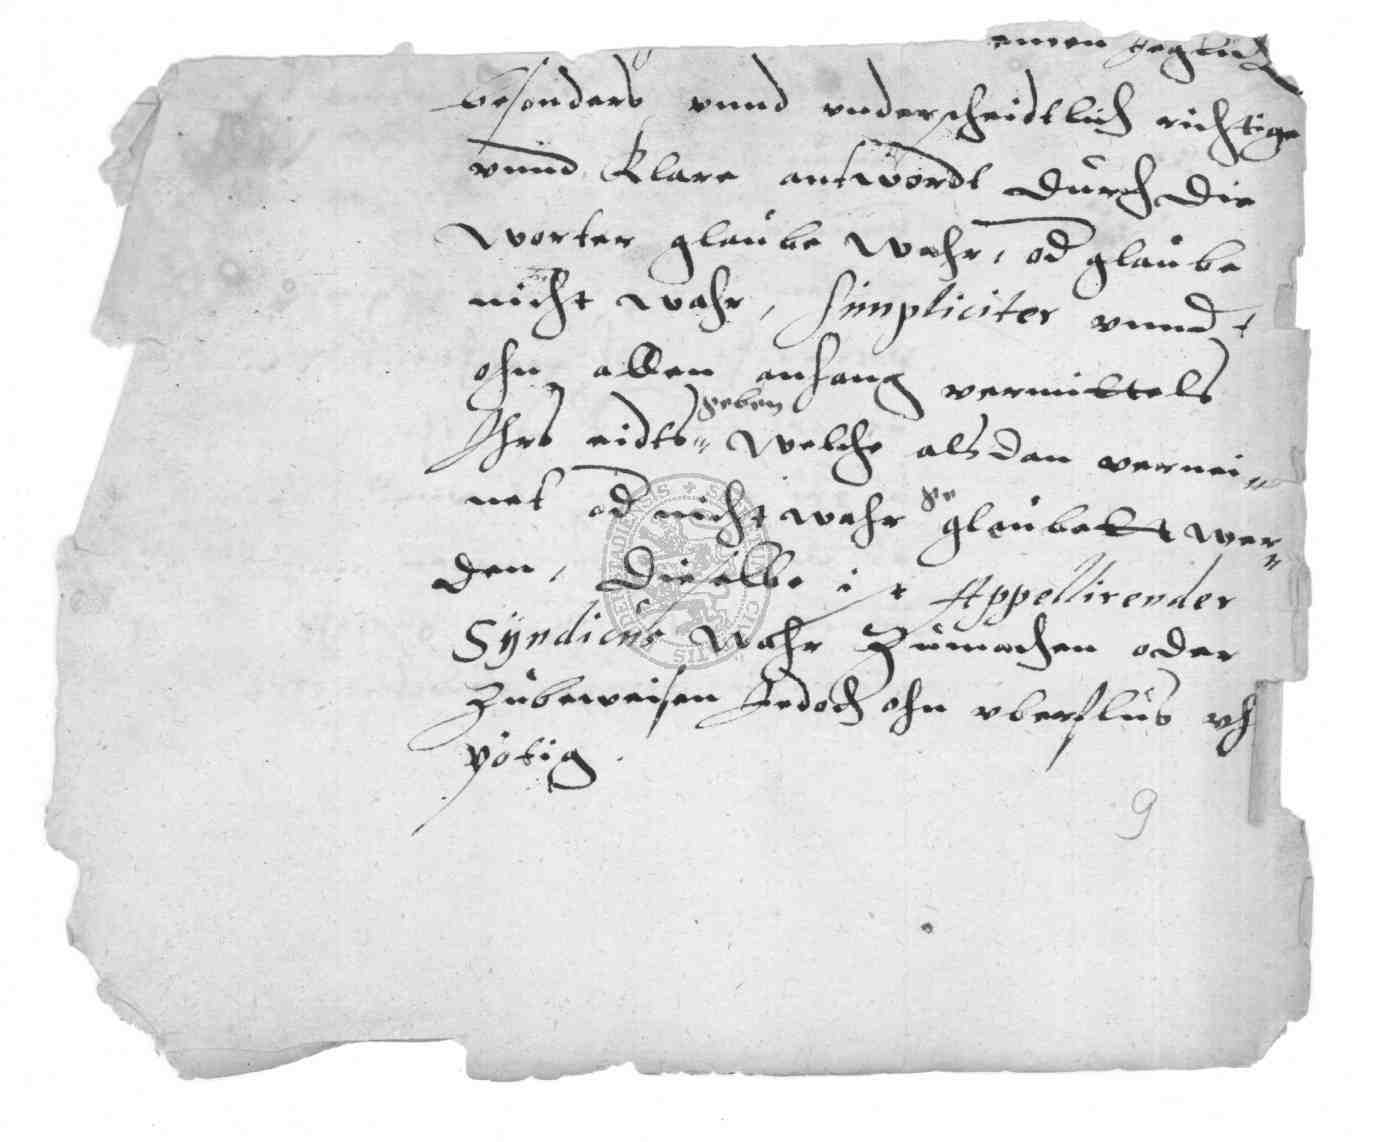 einen jeglich
besonders vnnd vnderscheidtlich richtige
vnnd klare antwordt durch die
worter glaube wahr, od glaube
nicht wahr, simpliciter vnnd
ohn allen anhang vermittels
Ihrs eidts geben welche alsdan vernei„
net od nicht wahr ge glaubett wer„
den, Dieselbe ist Appellirender
Syndicus wahr Zumachen oder
Zubeweisen Jedoch ohn vberflus
9